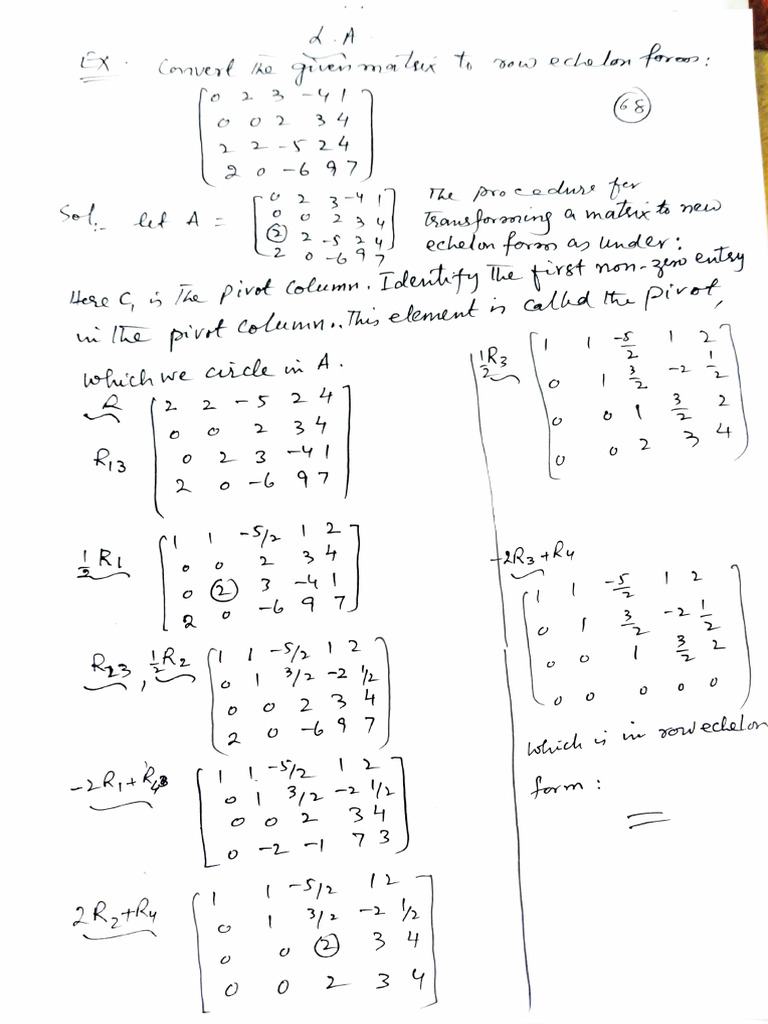 L.A
Ex. Convert the given matrix to row echelon form:
0 2 3 -4 1
0 0 2 3 4
2 2 -5 2 4
2 0 -6 9 7
68
Sol:- let A =
0 2 3 -4 1
0 0 2 3 4
2 2 -5 2 4
2 0 -6 9 7
The procedure for
transforming a matrix to row
echelon form as under:
Here C1 is The pivot column. Identify the first non-zero entry
in the pivot column.. This element is called the pivot,
which we circle in A.
R
R13
2 2 -5 2 4
0 0 2 3 4
0 2 3 -4 1
2 0 -6 9 7
1/2 R1
1 1 -5/2 1 2
0 0 2 3 4
0 2 3 -4 1
2 0 -6 9 7
R23, 1/2 R2
1 1 -5/2 1 2
0 1 3/2 -2 1/2
0 0 2 3 4
2 0 -6 9 7
-2R1+R4
1 1 -5/2 1 2
0 1 3/2 -2 1/2
0 0 2 3 4
0 -2 -1 7 3
2R2+R4
1 1 -5/2 1 2
0 1 3/2 -2 1/2
0 0 2 3 4
0 0 2 3 4
1/2 R3
1 1 -5/2 1 2
0 1 3/2 -2 1/2
0 0 1 3/2 2
0 0 2 3 4
-2R3+R4
1 1 -5/2 1 2
0 1 3/2 -2 1/2
0 0 1 3/2 2
0 0 0 0 0
which is in row echelon
form :